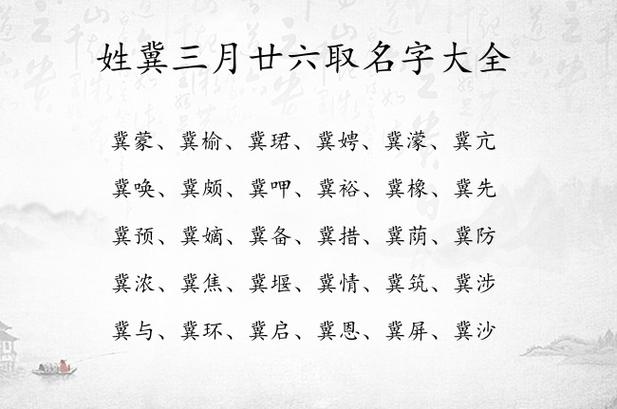 姓冀三月廿六取名字大全
冀蒙、冀榆、冀珺、冀娉、冀濛、冀亢
冀唤、冀颇、冀呷、冀裕、冀橡、冀先
冀预、冀嫡、冀备、冀措、冀荫、冀防
冀浓、冀焦、冀堰、冀情、冀筑、冀涉
冀与、冀环、冀启、冀恩、冀屏、冀沙